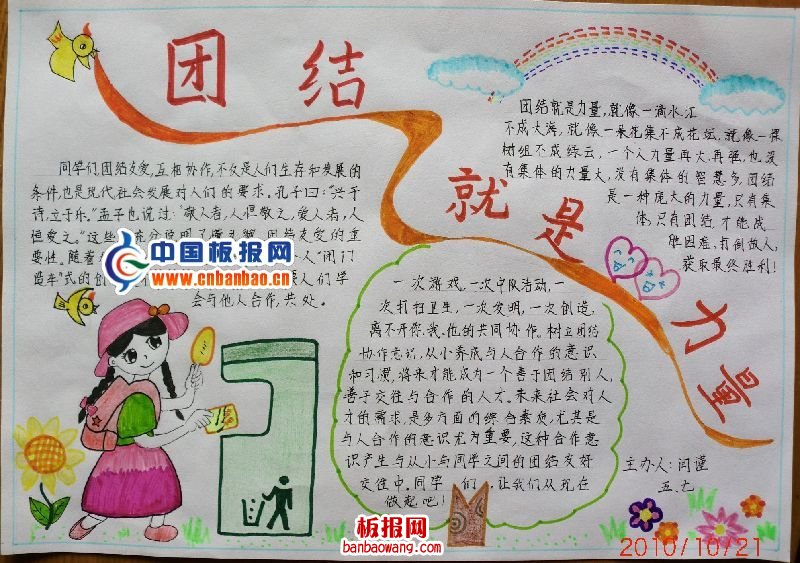 团结
就是
力量
团结就是力量,就像一滴水汇
不成大海,就像一朵花集不成花坛,就像一棵
树组不成绿云,一个人力量再大,再强,也没
有集体的力量大,没有集体的智慧多,团结
是一种庞大的力量,只有集
体,只有团结,才能战
胜困难,打倒敌人,
获取最终胜利!
同学们团结友爱,互相协作,不仅是人们生存和发展的
条件,也是现代社会发展对人们的要求。孔子曰:“兴于
诗,立于乐。”孟子也说过:“敬人者,人恒敬之,爱人者,人
恒爱之。”这些
团结友爱的重
要性。随着
人“闭门
造车”式的创
要人们学
会与他人合作,共处。
中国板报网
www.cnbanbao.cn
一次游戏,一次中队活动,一
次打扫卫生,一次发明,一次创造,
离不开你、我、他的共同协作。树立团结
协作意识,从小养成与人合作的意识
和习惯,将来才能成为一个善于团结别人,
善于交往与合作的人才。未来社会对人
才的需求,是多方面的综合素质,尤其是
与人合作的意识尤为重要,这种合作意
识产生与从小与同学之间的团结友好
交往中。同学们,让我们从现在
做起吧!
主办人:闫谨
五、九
板报网
banbaowang.com
2010/10/21